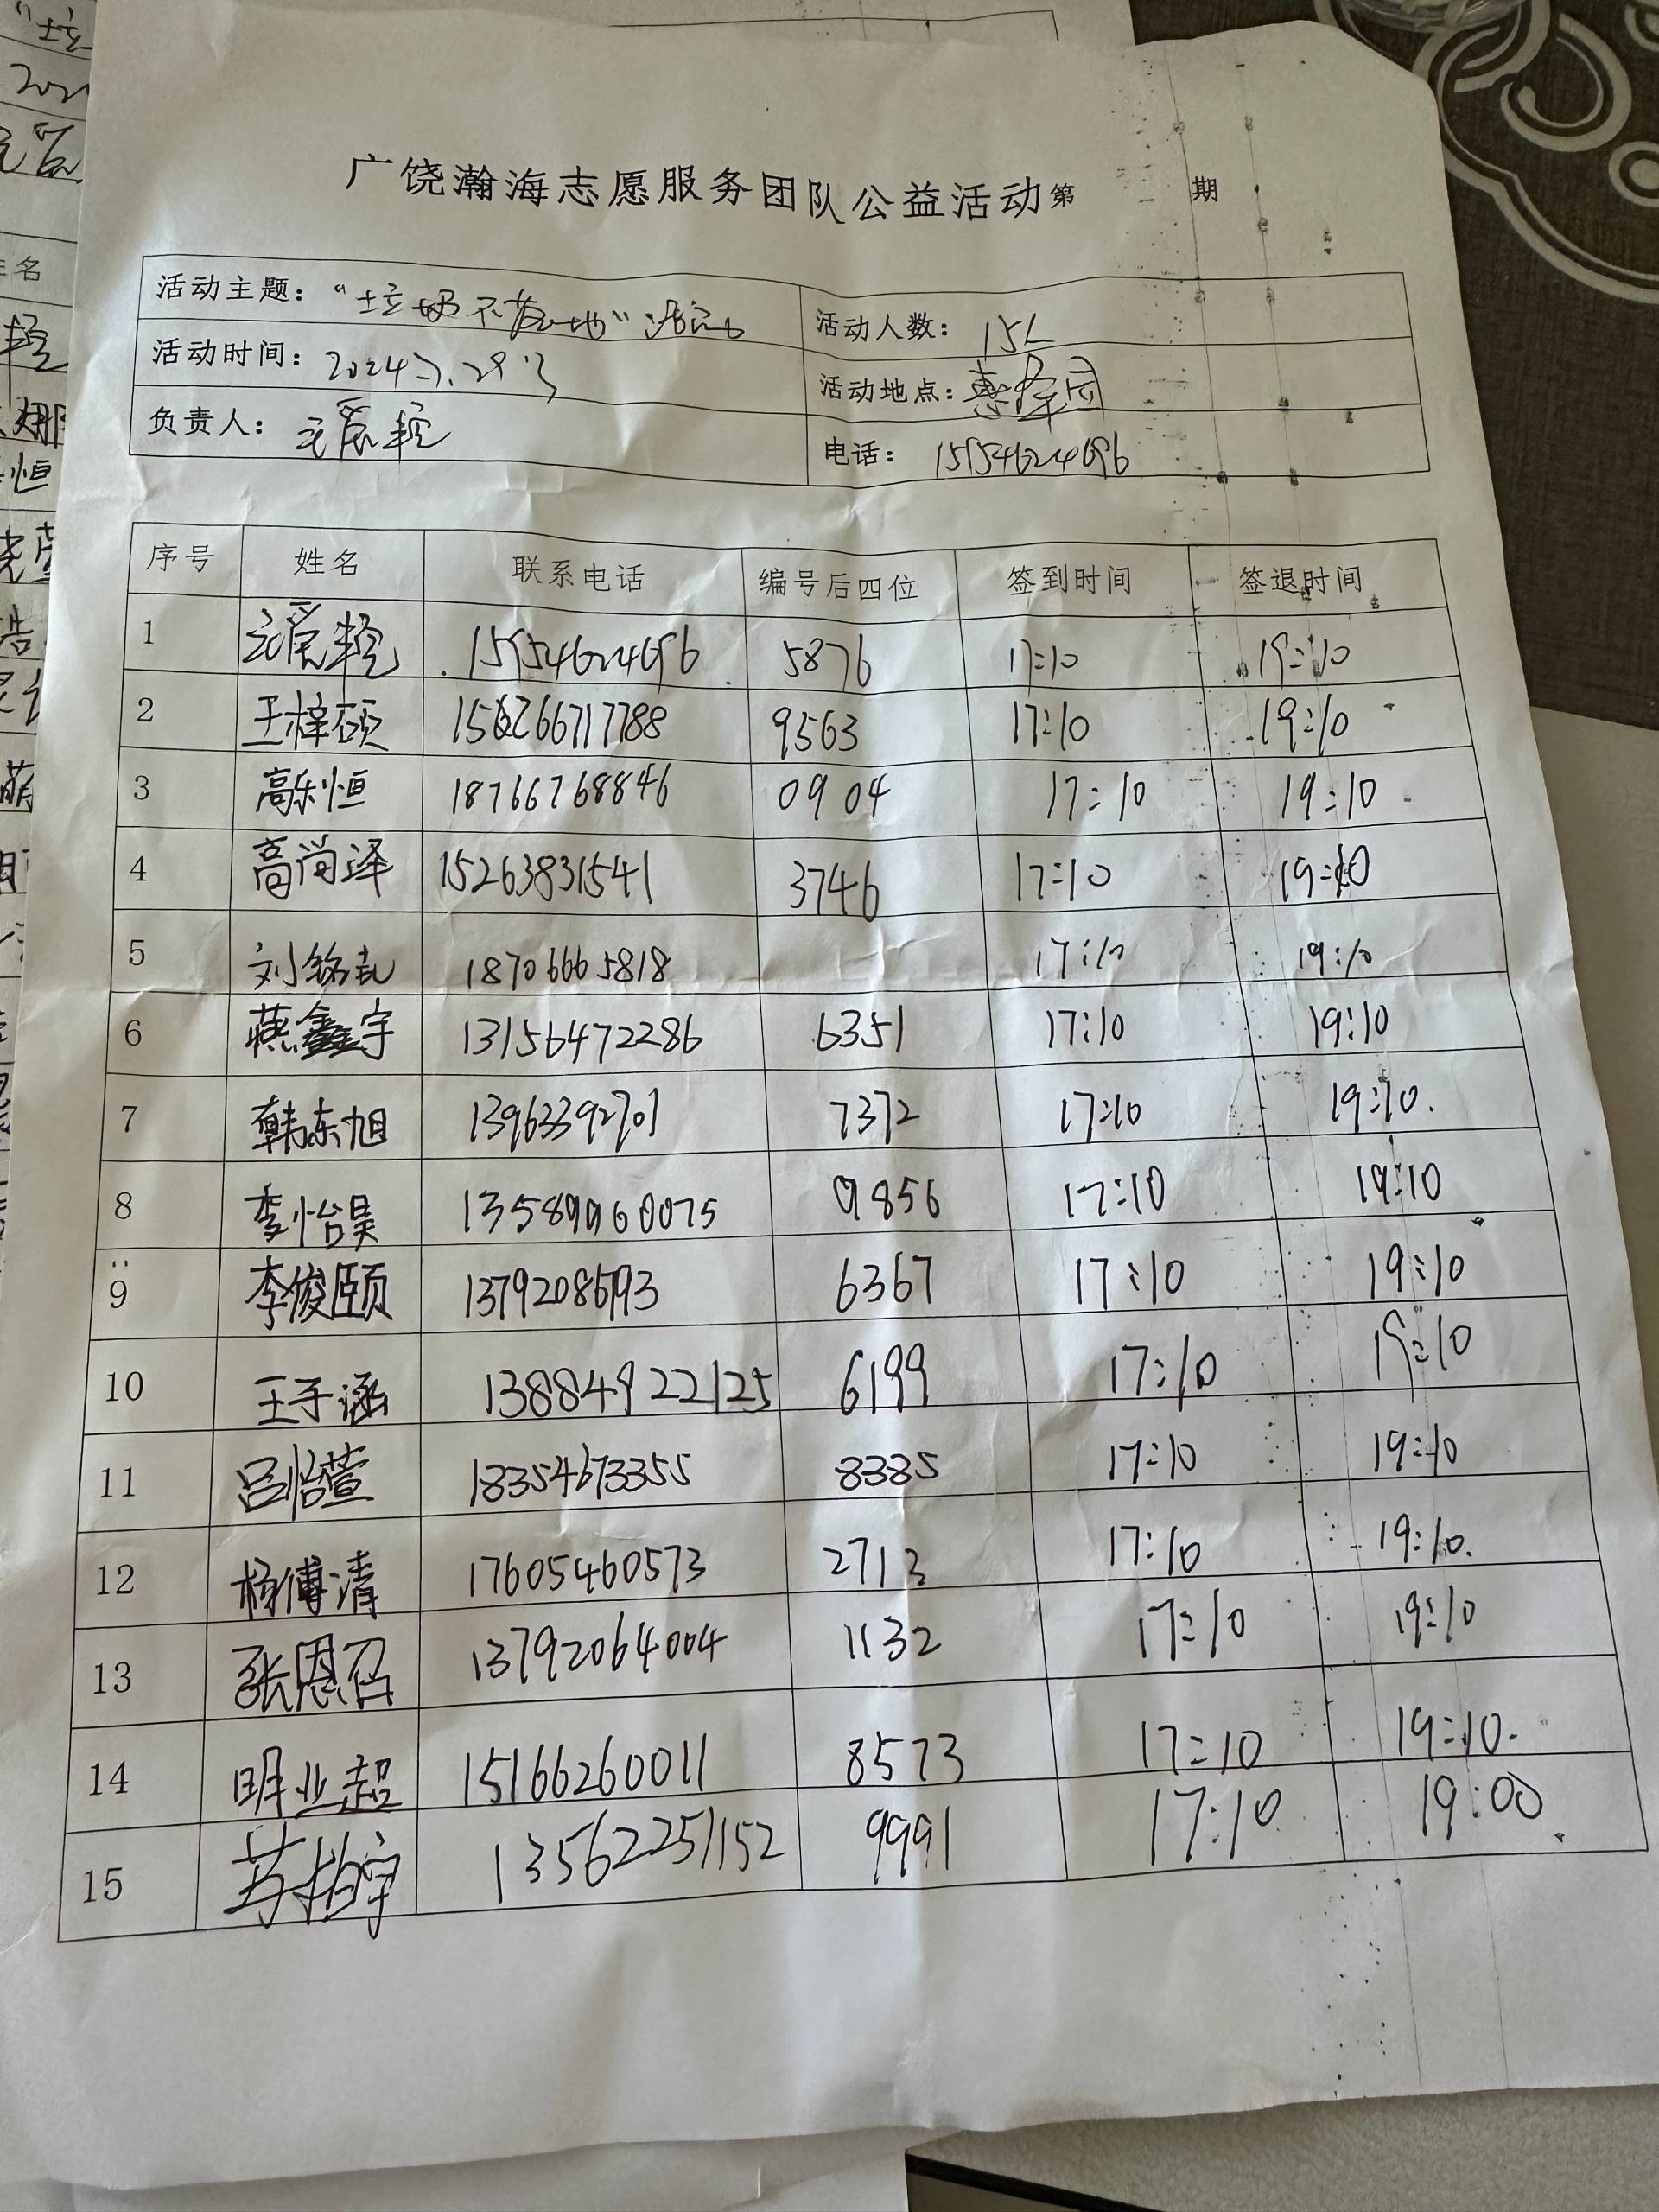 广饶瀚海志愿服务团队公益活动第 期
活动主题： 活动人数：15人
活动时间：2024.7.29 活动地点：惠泽园
负责人： 电话：15954624696
序号 姓名 联系电话 编号后四位 签到时间 签退时间
1 15954624696 5876 17:10 19:10
2 王梓硕 9563 17:10 19:10
3 高乐恒 18766768846 0904 17:10 19:10
4 高尚泽 15263831541 3746 17:10 19:10
5 刘铭 18706665818 17:10 19:10
6 燕鑫宇 13156472286 6351 17:10 19:10
7 韩东旭 13963392701 7372 17:10 19:10
8 李怡昊 135899960075 9856 17:10 19:10
9 李俊颐 6367 17:10 19:10
10 王子涵 13884922125 6199 17:10 19:10
11 吕怡萱 18354673355 8385 17:10 19:10
12 杨傅清 17605460573 2713 17:10 19:10.
13 张恩召 13792064004 1132 17:10 19:10
14 明业超 15166260011 8573 17:10 19:10.
15 苏柏宇 13562251152 9991 17:10 19:00